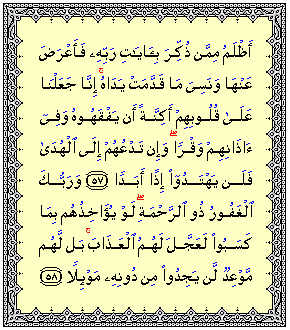 أَظْلَمُ مِمَّن ذُكِّرَ بِـَٔايَٰتِ رَبِّهِۦ فَأَعْرَضَ
عَنْهَا وَنَسِىَ مَا قَدَّمَتْ يَدَاهُ ۚ إِنَّا جَعَلْنَا
عَلَىٰ قُلُوبِهِمْ أَكِنَّةً أَن يَفْقَهُوهُ وَفِىٓ
ءَاذَانِهِمْ وَقْرًا ۖ وَإِن تَدْعُهُمْ إِلَى ٱلْهُدَىٰ
فَلَن يَهْتَدُوٓا۟ إِذًا أَبَدًا ﴿٥٧﴾ وَرَبُّكَ
ٱلْغَفُورُ ذُو ٱلرَّحْمَةِ ۖ لَوْ يُؤَاخِذُهُم بِمَا
كَسَبُوا۟ لَعَجَّلَ لَهُمُ ٱلْعَذَابَ ۚ بَل لَّهُم
مَّوْعِدٌ لَّن يَجِدُوا۟ مِن دُونِهِۦ مَوْئِلًا ﴿٥٨﴾